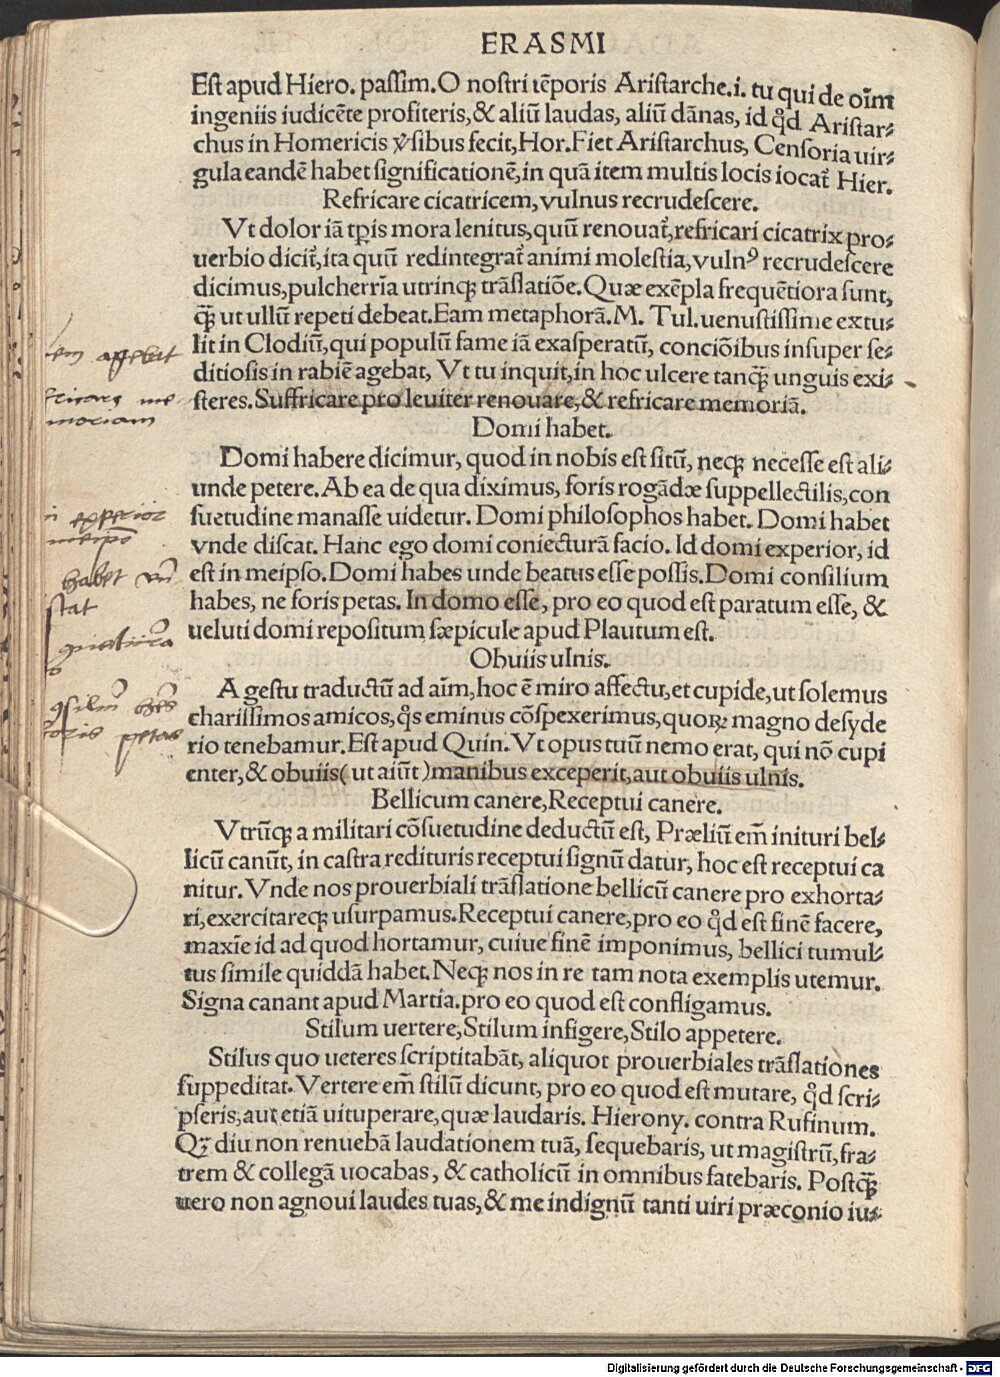 ERASMI
Eſt apud Hiero. paſſim. O noſtri tẽporis Ariſtarche .i. tu qui de oĩm
ingeniis iudicẽte profiteris, & aliũ laudas, aliũ dãnas, id qđ Ariſtar⸗
chus in Homericis ꝟſibus fecit, Hor. Fiet Ariſtarchus, Cenſoria uir⸗
gula eandẽ habet ſignificationẽ, in quã item multis locis iocat̃ Hier.
Refricare cicatricem, vulnus recrudeſcere.
Vt dolor iã tꝑis mora lenitus, quũ renouat̃, refricari cicatrix pro⸗
uerbio dicit̃, ita quũ redintegrat̃ animi moleſtia, vulnꝰ recrudeſcere
dicimus, pulcherria utrinqꝫ trãſlatiõe. Quæ exẽpla frequẽtiora ſunt,
ꝗ̃ ut ullũ repeti debeat. Eam metaphorã. M. Tul. uenuſtiſſime extu⸗
lit in Clodiũ, qui populũ fame iã exaſperatũ, conciõibus inſuper ſe⸗
ditioſis in rabiẽ agebat, Vt tu inquit, in hoc ulcere tanꝗ̃ unguis exi⸗
ſteres. Suffricare pro leuiter renouare, & refricare memoriã.
Domi habet.
Domi habere dicimur, quod in nobis eſt ſitũ, neqꝫ neceſſe eſt ali⸗
unde petere. Ab ea de qua diximus, foris rogãdæ ſuppellectilis, con
ſuetudine manaſſe uidetur. Domi philoſophos habet. Domi habet
vnde diſcat. Hanc ego domi coniecturã facio. Id domi experior, id
eſt in meipſo. Domi habes unde beatus eſſe poſſis. Domi conſilium
habes, ne foris petas. In domo eſſe, pro eo quod eſt paratum eſſe, &
ueluti domi repoſitum ſæpicule apud Plautum eſt.
Obuiis ulnis.
A geſtu traductũ ad aĩm, hoc ẽ miro affectu, et cupide, ut ſolemus
chariſſimos amicos, q̃s eminus cõſpexerimus, quoꝝ magno deſyde
rio tenebamur. Eſt apud Quin. Vt opus tuũ nemo erat, qui nõ cupi
enter, & obuiis (ut aiũt) manibus exceperit, aut obuiis ulnis.
Bellicum canere, Receptui canere.
Vtrũqꝫ a militari cõſuetudine deductũ eſt, Præliũ em̃ inituri bel⸗
licũ canũt, in caſtra redituris receptui ſignũ datur, hoc eſt receptui ca
nitur. Vnde nos prouerbiali trãſlatione bellicũ canere pro exhorta⸗
ri, exercitareqꝫ uſurpamus. Receptui canere, pro eo qđ eſt finẽ facere,
maxĩe id ad quod hortamur, cuiue finẽ imponimus, bellici tumul⸗
tus ſimile quiddã habet. Neqꝫ nos in re tam nota exemplis utemur.
Signa canant apud Martia. pro eo quod eſt confligamus.
Stilum uertere, Stilum infigere, Stilo appetere.
Stilus quo ueteres ſcriptitabãt, aliquot prouerbiales trãſlationes
ſuppeditat. Vertere em̃ ſtilũ dicunt, pro eo quod eſt mutare, qđ ſcri⸗
pſeris, aut etiã uituperare, quæ laudaris. Hierony. contra Rufinum.
Qꝫ diu non renuebã laudationem tuã, ſequebaris, ut magiſtrũ, fra⸗
trem & collegã uocabas, & catholicũ in omnibus fatebaris. Poſtꝗ̃
uero non agnoui laudes tuas, & me indignũ tanti uiri præconio iu⸗
agebat
moriam
experior
meipõ
habet vñ
stat
Digitalisierung gefördert durch die Deutsche Forschungsgemeinschaft - DFG